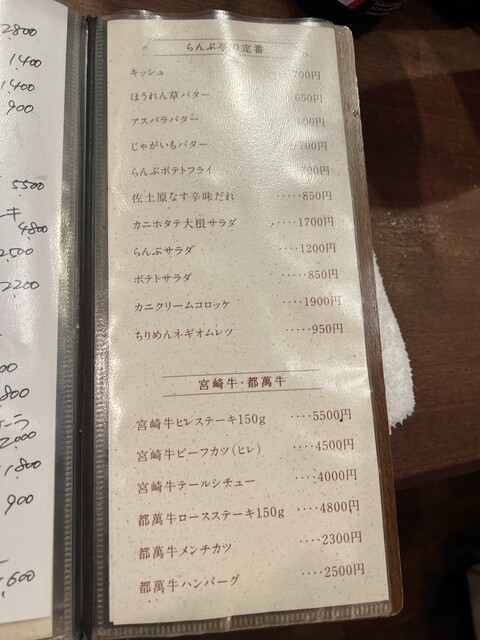 2800
1,400
1,400
900
5,500
キ
4,800
2,500
2,200
800
2,000
1,800
900
1,600
らんぷ亭の定番
キッシュ 700円
ほうれん草バター 650円
アスパラバター 円
じゃがいもバター 700円
らんぷポテトフライ 円
佐土原なす辛味だれ ‥‥‥850円
カニホタテ大根サラダ ‥‥‥1700円
らんぷサラダ ‥‥‥1200円
ポテトサラダ ‥‥‥850円
カニクリームコロッケ ‥‥1900円
ちりめんネギオムレツ ‥‥‥950円
宮崎牛・都萬牛
宮崎牛ヒレステーキ150g ‥‥5500円
宮崎牛ビーフカツ(ヒレ) ‥‥4500円
宮崎牛テールシチュー ‥‥4000円
都萬牛ロースステーキ150g ‥‥4800円
都萬牛メンチカツ ‥‥2300円
都萬牛ハンバーグ ‥‥2500円